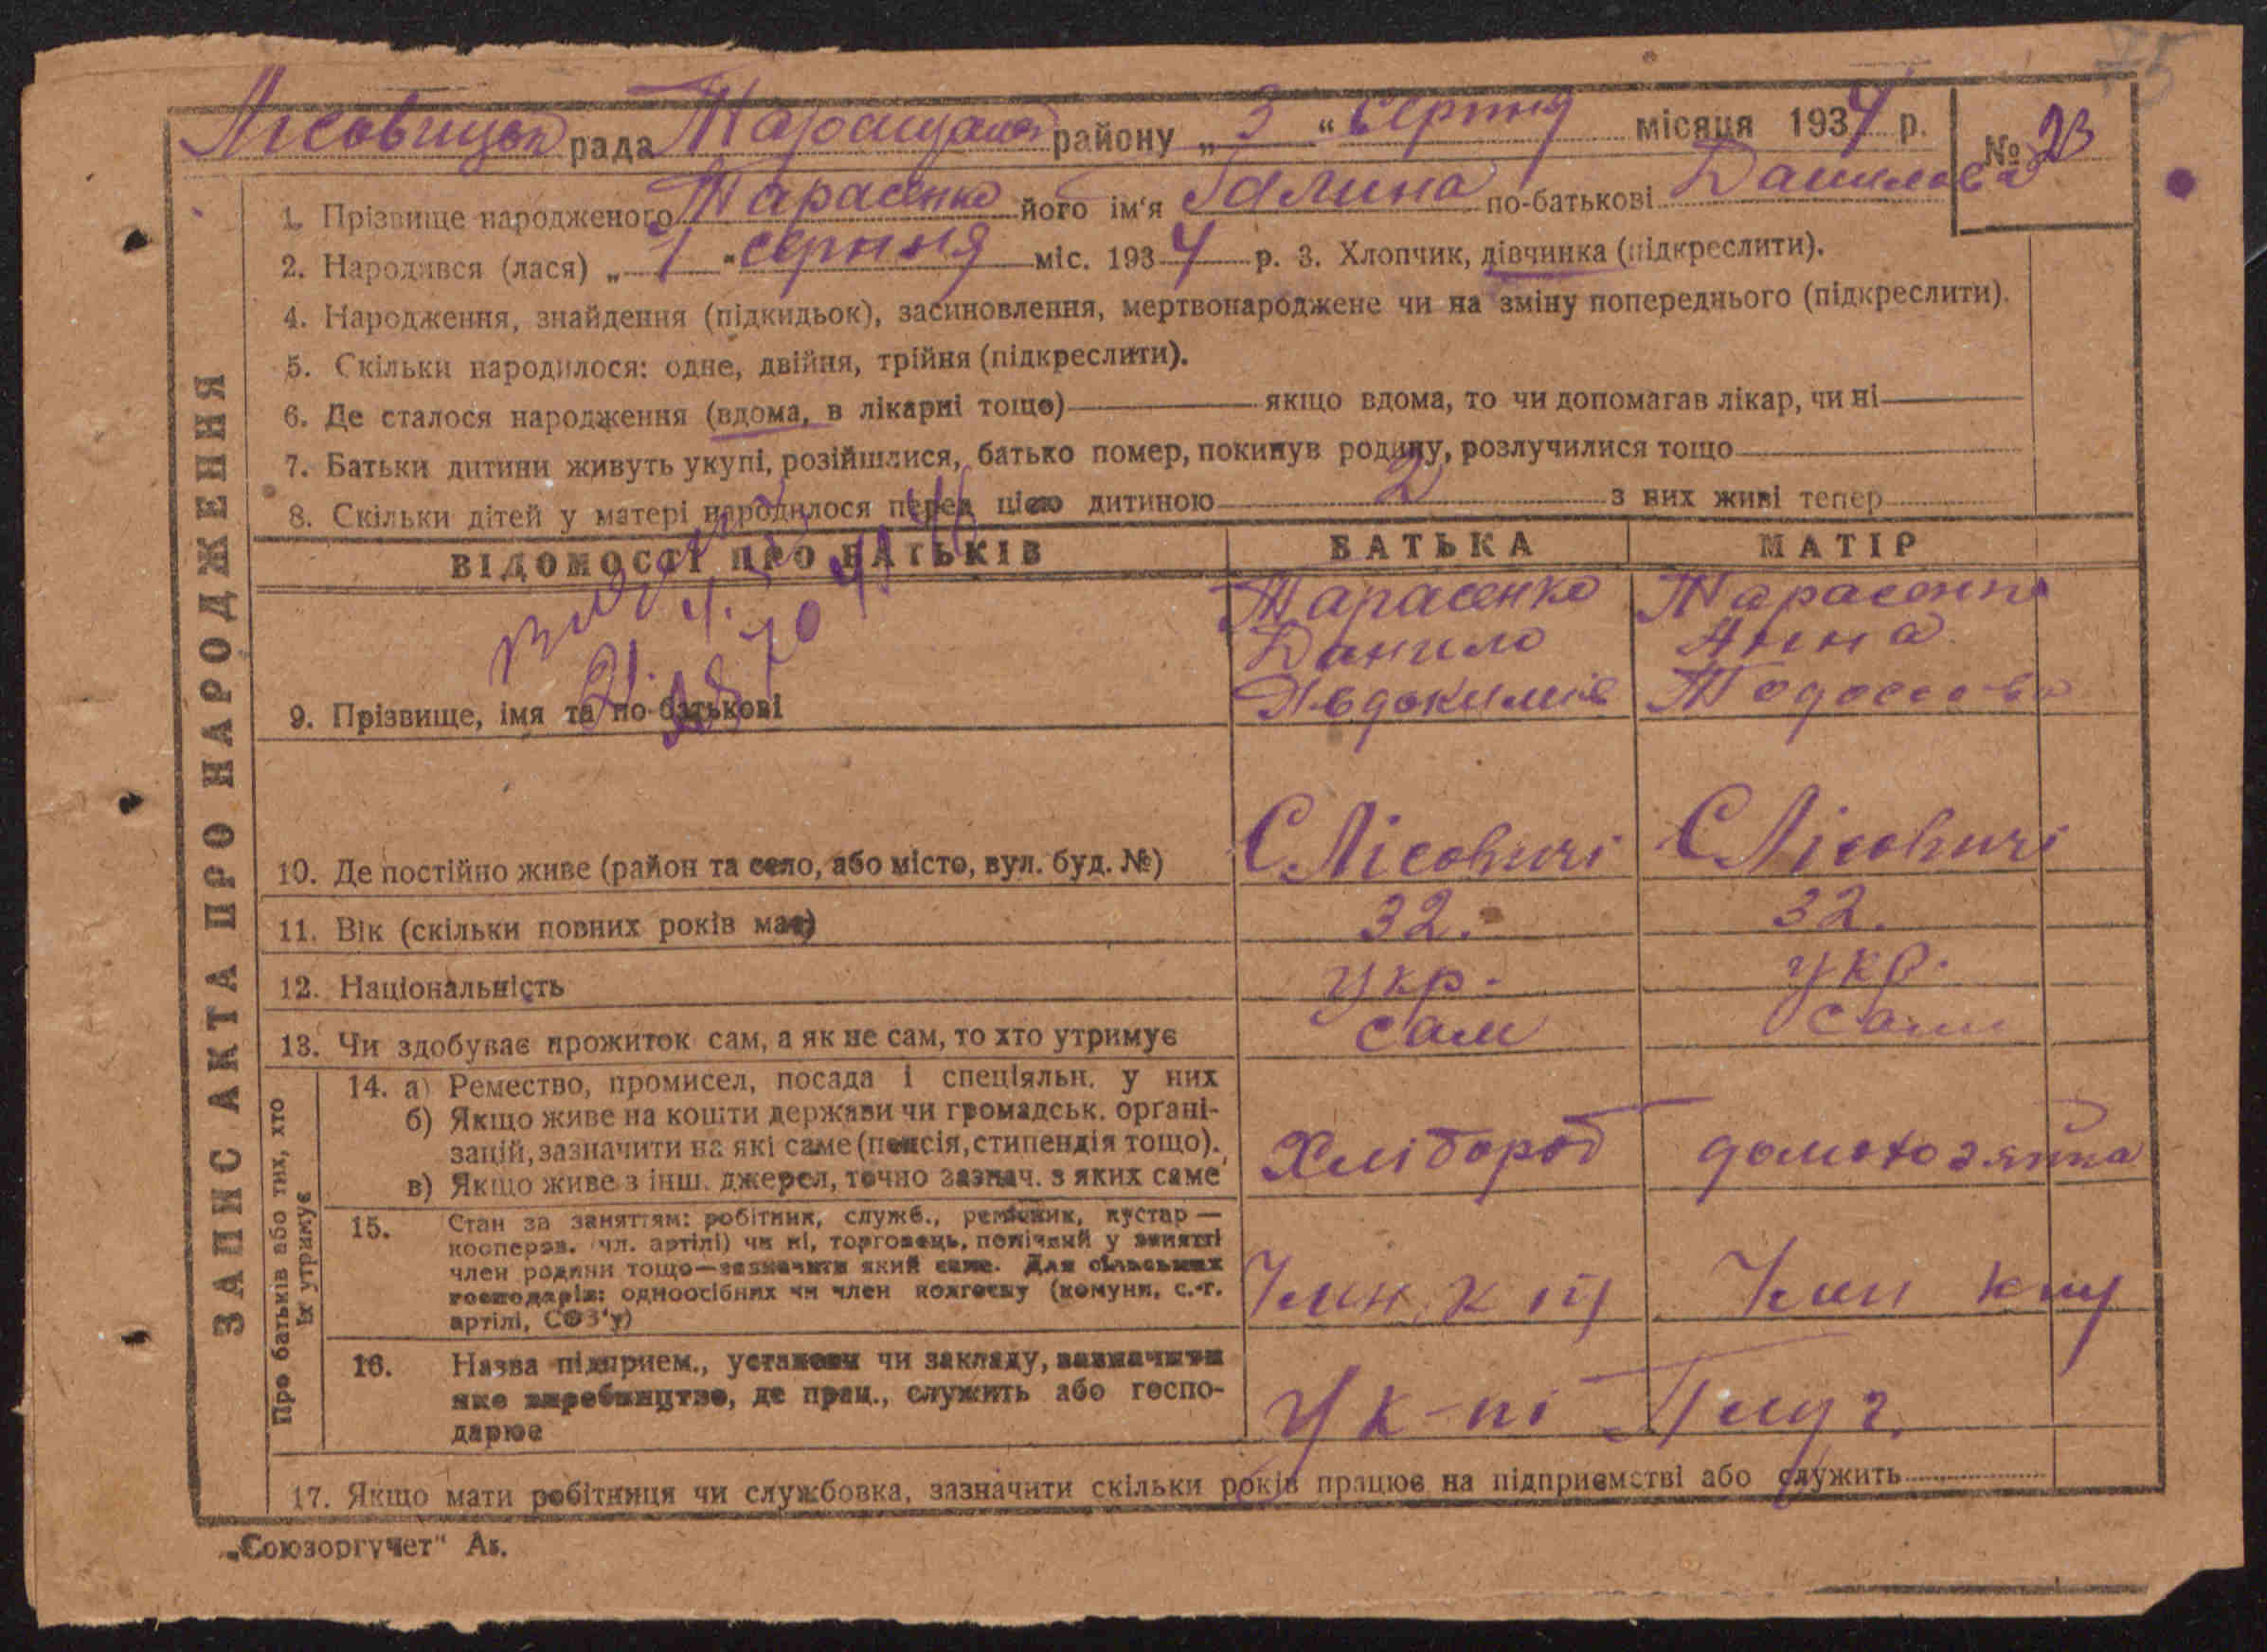 75
Лісовицька рада Таращанс району „3“ серпня місяця 1934 р. № 23
ЗАПИС АКТА ПРО НАРОДЖЕННЯ
1. Прізвище народженого Тарасенко його ім'я Галина по-батькові Данилова
2. Народився (лася) „1“ серпня міс. 1934 р. 3. Хлопчик, дівчинка (підкреслити).
4. Народження, знайдення (підкидьок), засиновлення, мертвонароджене чи на зміну попереднього (підкреслити).
5. Скільки народилося: одне, двійня, трійня (підкреслити).
6. Де сталося народження (вдома, в лікарні тощо) якщо вдома, то чи допомагав лікар, чи ні
7. Батьки дитини живуть укупі, розійшлися, батько помер, покинув родину, розлучилися тощо
8. Скільки дітей у матері народилося перед цією дитиною 2 з них живі тепер
ВІДОМОСТІ ПРО БАТЬКІВ БАТЬКА МАТІР
Тарасенко Тарасенко
Данило Анна
9. Прізвище, імя та по-батькові Явдокимів Тодосова
10. Де постійно живе (район та село, або місто, вул. буд. №) С Лісовичі С Лісовичі
11. Вік (скільки повних років має) 32. 32.
12. Національність укр. укр.
13. Чи здобуває прожиток сам, а як не сам, то хто утримує сам сама
Про батьків або тих, хто
їх утримує
14. а) Ремество, промисел, посада і спеціяльн. у них
б) Якщо живе на кошти держави чи громадськ. органі-
зацій, зазначити на які саме (пенсія, стипендія тощо).
в) Якщо живе з інш. джерел, точно зазнач. з яких саме Хлібороб домохозяйка
15. Стан за заняттям: робітник, служб., ремісник, кустар —
кооперов. чл. артілі) чи ні, торговець, помічний у занятті
член родини тощо—зазначити який саме. Для сільських
господарів: одноосібних чи член колгоспу (комуни, с.-г.
артілі, СОЗ'у) Член
16. Назва підприєм., установи чи закладу, зазначити
яке виробництво, де прац., служить або госпо-
дарює У к-пі Плуг.
17. Якщо мати робітниця чи службовка, зазначити скільки років працює на підприємстві або служить
„Союзоргучет“ Ак.